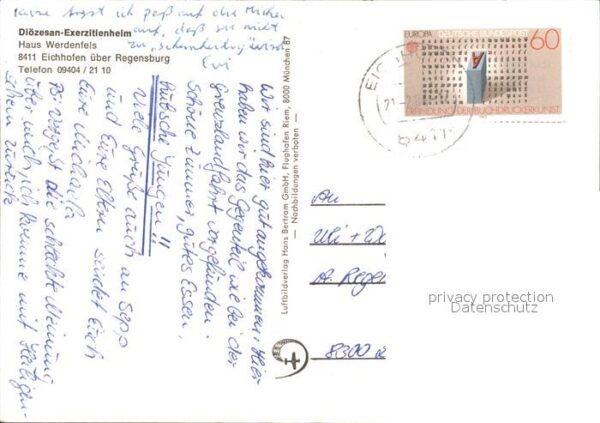 Keine Angst ich paß auf die Michaela
auf, daß sie nicht
zu "scheinheilig" wird
Evi
Diözesan-Exerzitienheim
Haus Werdenfels
8411 Eichhofen über Regensburg
Telefon 09404 / 21 10
Wir sind hier gut angekommen. Hier
haben wir das Gegenteil wie bei der
Grenzlandfahrt vorgefunden.
Schöne Zimmer, gutes Essen,
hübsche Jungen!!
Viele Grüße auch an Sepp
und Eure Eltern sendet Euch
Eure Michaela
PS: Vergeßt die schlechte Meinung
über mich, ich komme mit Heiligen-
schein zurück
Luftbildverlag Hans Bertram GmbH, Flughafen Riem, 8000 München 87
— Nachbildungen verboten —
EUROPA DEUTSCHE BUNDESPOST 60
ERFINDUNG DER BUCHDRUCKERKUNST
An
Uli +
8300
privacy protection
Datenschutz